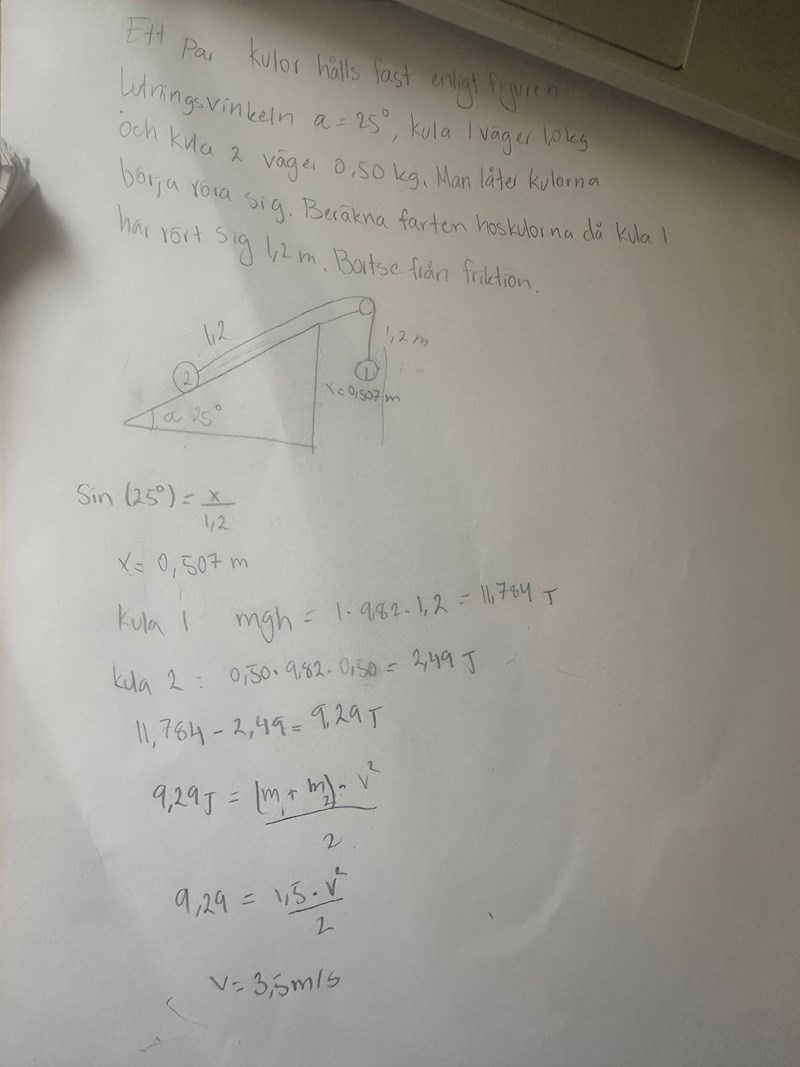 Ett Par kulor hålls fast enligt figuren
Lutningsvinkeln a = 25°, kula 1 väger 1,0 kg
och kula 2 väger 0,50 kg. Man låter kulorna
börja röra sig. Beräkna farten hoskulorna då kula 1
har rört sig 1,2 m. Bortse från friktion.
1,2
1,2 m
2
1
x=0,507 m
a 25°
Sin (25°) = x/1,2
x = 0,507 m
kula 1 mgh = 1 · 9,82 · 1,2 = 11,784 J
kula 2 : 0,50 · 9,82 · 0,50 = 2,49 J
11,784 - 2,49 = 9,29 J
9,29 J = (m₁ + m₂) · v²/2
9,29 = 1,5 · v²/2
v = 3,5 m/s